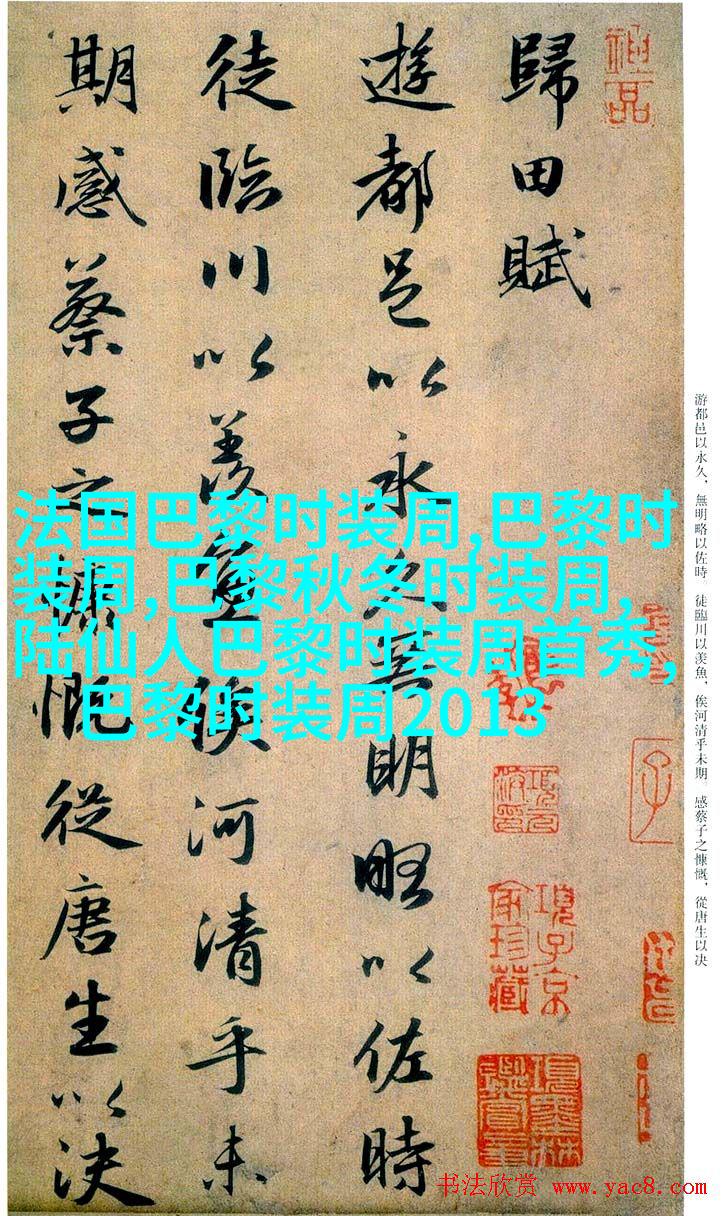 歸田賦
遊都邑以永久無明略以佐時
徒臨川以羨魚俟河清乎未
期感蔡子之慷慨從唐生以決
法国巴黎时装周,巴黎时
装周,巴黎秋冬时装周,
陆仙人巴黎时装周首秀,
巴黎时装周2013
游都邑以永久，無明略以佐時　徒臨川以羨魚，俟河清乎未期。感蔡子之慷慨，從唐生以决
項子京家珍藏
书法欣赏 www.yac8.com